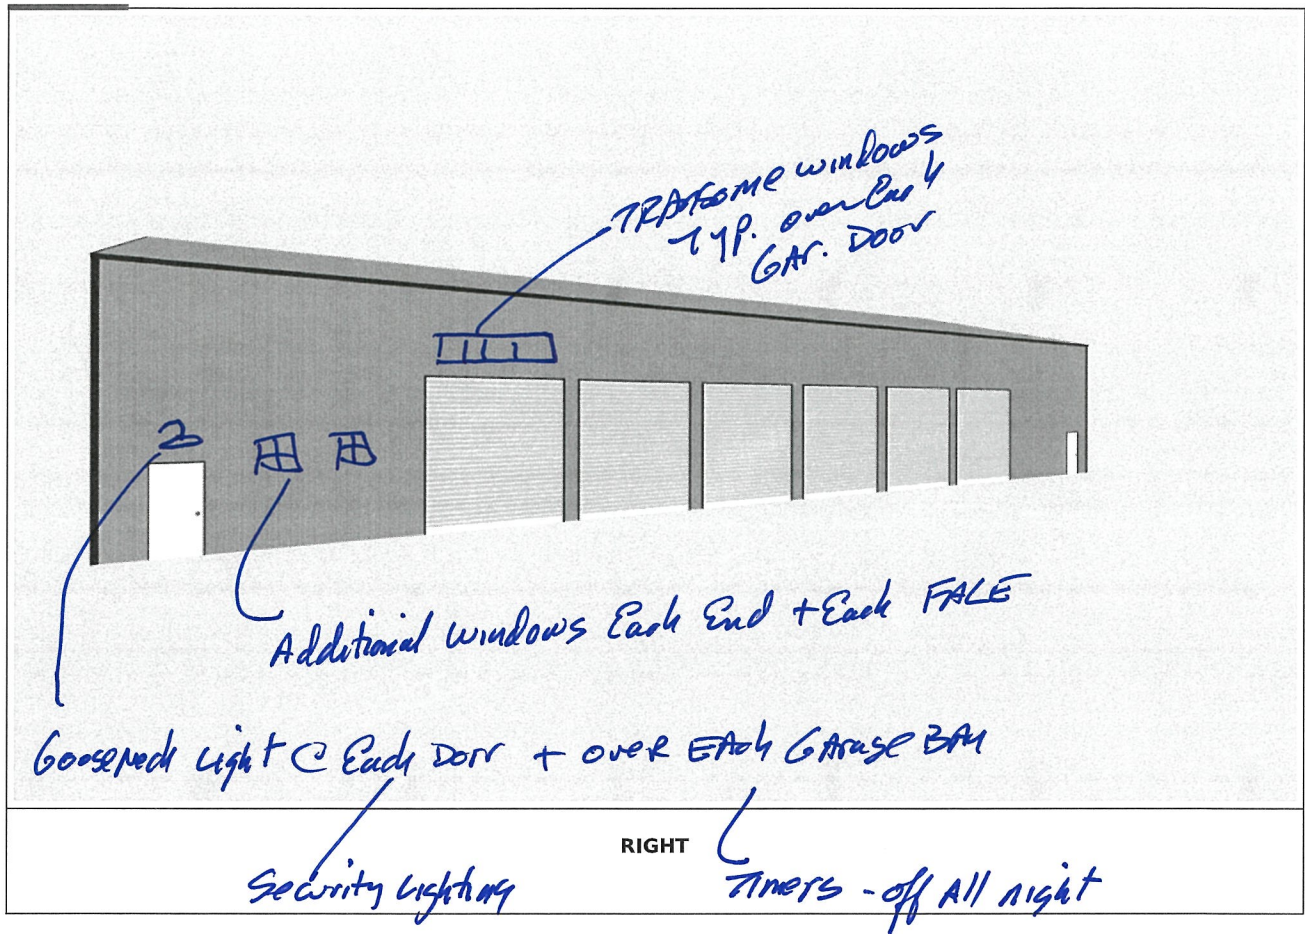 TRANSOME windows
Typ. over Each
GAr. Door
Additional windows Each End + Each FACE
Gooseneck Light @ Each Door + over EAch GArage BAy
RIGHT
Security Lighting
Timers - off All night